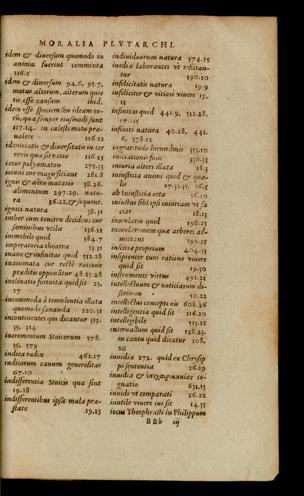 MORALIA PLVTARCHI.
idem & diuersum quomodo in
anima fuerint commixta
116.5
idem & diuersum 94.6, 95.7,
motus alterum, alterum quie
tis esse causam ibid.
idem esse speciem seu ideam eo-
rum, quæ semper eiusmodi sunt
117.14. in cælesti motu præ-
ualere 116.12
identitatis & diuersitatis in cer
teris quæ sit ratio 116.13
281.8
ignis & aëris mutatio 38.26.
alimentum 297.29. natu-
ra 36.22. & sequent.
ignis natura 38.31
imber cum tonitru decidens cur
seminibus vtilis 136.11
immobile quid 584.7
imperatoria theatra 53.21
inane & infinitas quid 512.28
inanimata cur recte ratione
prædita opponantur 48.25.28
incommoda à temulentia illata
quomodo sananda 220.31
incontinentes qui dicantur 312.
35. 314
incrementum Stoicorum 578.
35. 579
indica radix 462.17
indicorum canum generositas
67.10
indifferentia Stoicis quæ sint
19.28
indifferentibus ipsa mala præ-
stare 19.13
indiuiduorum natura 574.25
inedia laborantes vt refician-
tur 190.10
infelicitatis natura 19.9
infeliciter & vitiosè viuere 15.
11
infinitas quid 442.9, 512.28,
infiniti natura 40.28, 441.
6, 578.12
iniuria alteri illata 18.3
iniustitia animi quid & qua-
lis 17.31.35. 16.5
ab iniustitia orta 56.20
iniustus sibi ipsi iniuriam vt fa
ciat 18.13
inoculatio quid 198.25
inoculationem quæ arbores ad-
mittant 199.35
inscitia propriū 404.13
insipienter cum ratione viuere
quid sit 19.30
instrumenti virtus 491.25
intellectuum & noticiarum di-
scrimen 50.22
intellectus conceptio eius 608.26
intelligentia quid sit 116.20
intelligibile 513.12
interuallum quid sit 128.23.
in cantu quid dicatur 108.
26
inuidia 272. quid ex Chrysip
pi sententia 26.19
inuidia & ἐπιχαιρεκακίας co-
gnatio 631.13
inuidi vt comparati 26.22
inutile viuere cui sit 14.35
iocus Theophrasti in Philippum
BBb iij